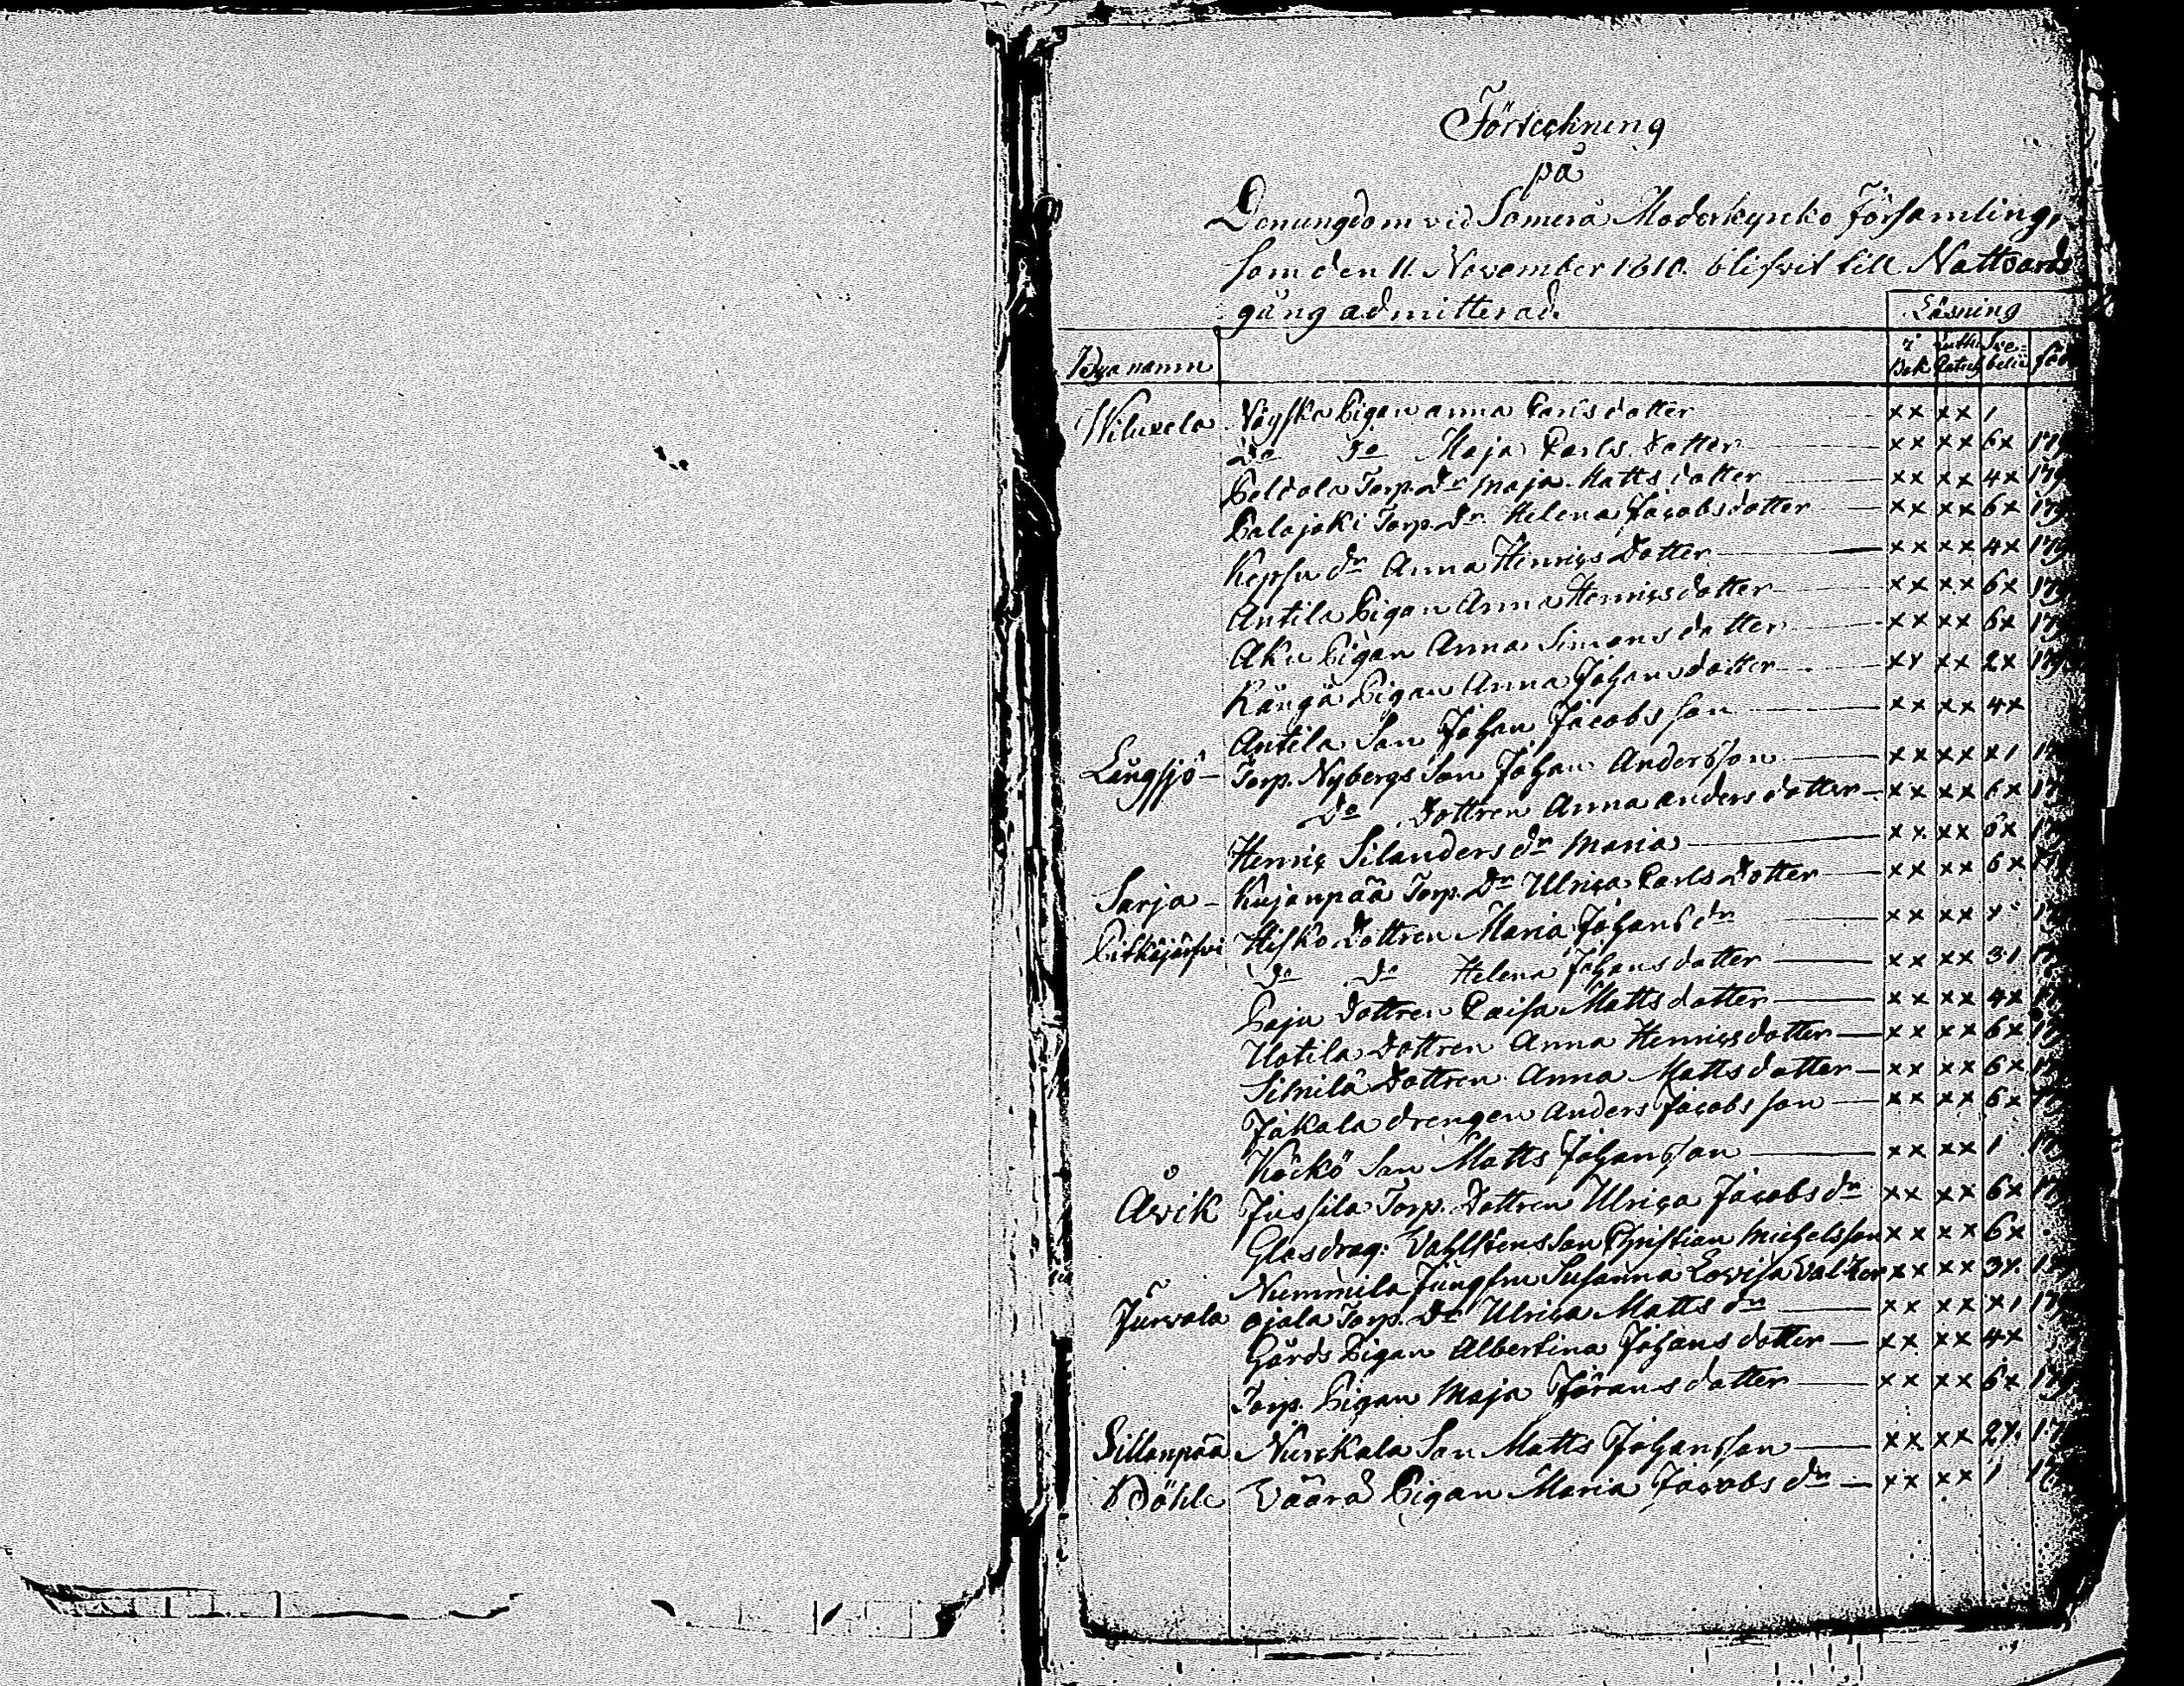 Förteckning
på
Den ungdom vid Somero Moderkyrko Församling,
som den 11. November 1810. blifvit till Nattvards
gång admitterad.
Läsning
Bya namn i Bok Luth: Catech Sve- belii föd
Wiluxela Nöyska Pigan Anna Carlsdotter xx xx 1
Do Do Maja Carls dotter xx xx 6x 179
Peldola Torp. Dr Maja Matts dotter xx xx 4x 179
Palojoki Torp. Dr Helena Jacobsdotter xx xx 6x 179
Kepsu dr Anna Henrics Dotter xx xx 4x 179
Antila Pigan Anna Henricsdotter xx xx 6x 179
Aku Pigan Anna Simonsdotter xx xx 6x 179
Kångå Pigan Anna Johansdotter xx xx 2x 179
Antila Son Johan Jacobsson xx xx 4x
Långsjö Torp. Nybergs Son Johan Andersson xx xx x1 17
Do Dottren Anna Andersdotter xx xx 6x 17
Henric Silanders dr Maria xx xx 6x
Sarja Kujanpää Torp. Dr Ulrica Carls Dotter xx xx 6x
Pitkäjärfvi Hisko Dottren Maria Johans dr xx xx x
Do Do Helena Johansdotter xx xx 31
Paju Dottren Caisa Mattsdotter xx xx 4x
Uotila Dottren Anna Henricsdotter xx xx 6x 17
Simila Dottren Anna Mattsdotter xx xx 6x
Jakala drengen Anders Jacobsson xx xx 6x
Köckö Son Matts Johansson xx xx 1
Åvik Jussila Torp. Dottren Ulrica Jacobs dr xx xx 6x 17
Glasdrag: Dahlstens Son Christian Michelsson xx xx 6x
Nummila Jungfru Susanna Lovisa xx xx 3x
Jurvala Ojala Torp. Dr Ulrica Matts dr xx xx x1 17
Gårds Pigan Albertina Johans dotter xx xx 4x
Torp. Pigan Maja Göransdotter xx xx 6x 179
Sillanpää Nurckala Son Matts Johansson xx xx 2x 17
Pöhle Väärä Pigan Maria Jacobs dr xx xx 1 17